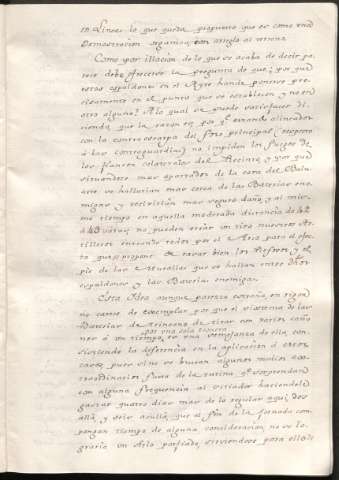 en Linea: lo que queda propuesto que es como una
Demostracion segun con arreglo al terreno.
Como por illacion de lo que se acaba de decir pa-
rece debe ofrecerse la pregunta de que; por que
estos espaldones en el Ayre hande ponerse pre-
cisamente en el punto que se establecen y no en
otro alguno? Alo qual se puede satisfacer di-
ciendo, que la razon es por q.e estando alineados
con la contraescarpa del foso principal (respecto
á las corresguardias) no impiden los fuegos de
los flancos colaterales del Recinto, y por que
situandose mas apartados de la cara del Balu-
arte se hallarian mas cerca de las Baterias ene-
migas y recivirian mas seguro daño, y al mis-
mo tiempo en aquella moderada distancia de 42
á 43 varas, no pueden errar un tiro nuestros Ar-
tilleros entrando todos por el Arco para el efec-
to que se propone de cavar bien los Defensores y el
pie de las Murallas que se hallan entre Dhos
espaldones y las Baterias enemigas.
Esta Idea aunque parezca extraña, en rigor
no carece de exemplar, por que el sistema de las
Baterias de de tirar con varios caño-
por una sola tronera
nes á un tiempo, es una semejanza de ella, con-
sistiendo la diferencia en la aplicacion á estos
casos, pues si no se buscan algunos medios ex-
traordinarios fuera de la rutina q.e sorprendan
con alguna frequencia al sitiador haciendole
gastar quatro dias mas de lo regular aqui, dos
allá, y seis acullá, que al fin de la jornada com-
pongan tiempo de alguna consideracion, no se lo-
graria un Sitio porfiado, sirviendose para ello de